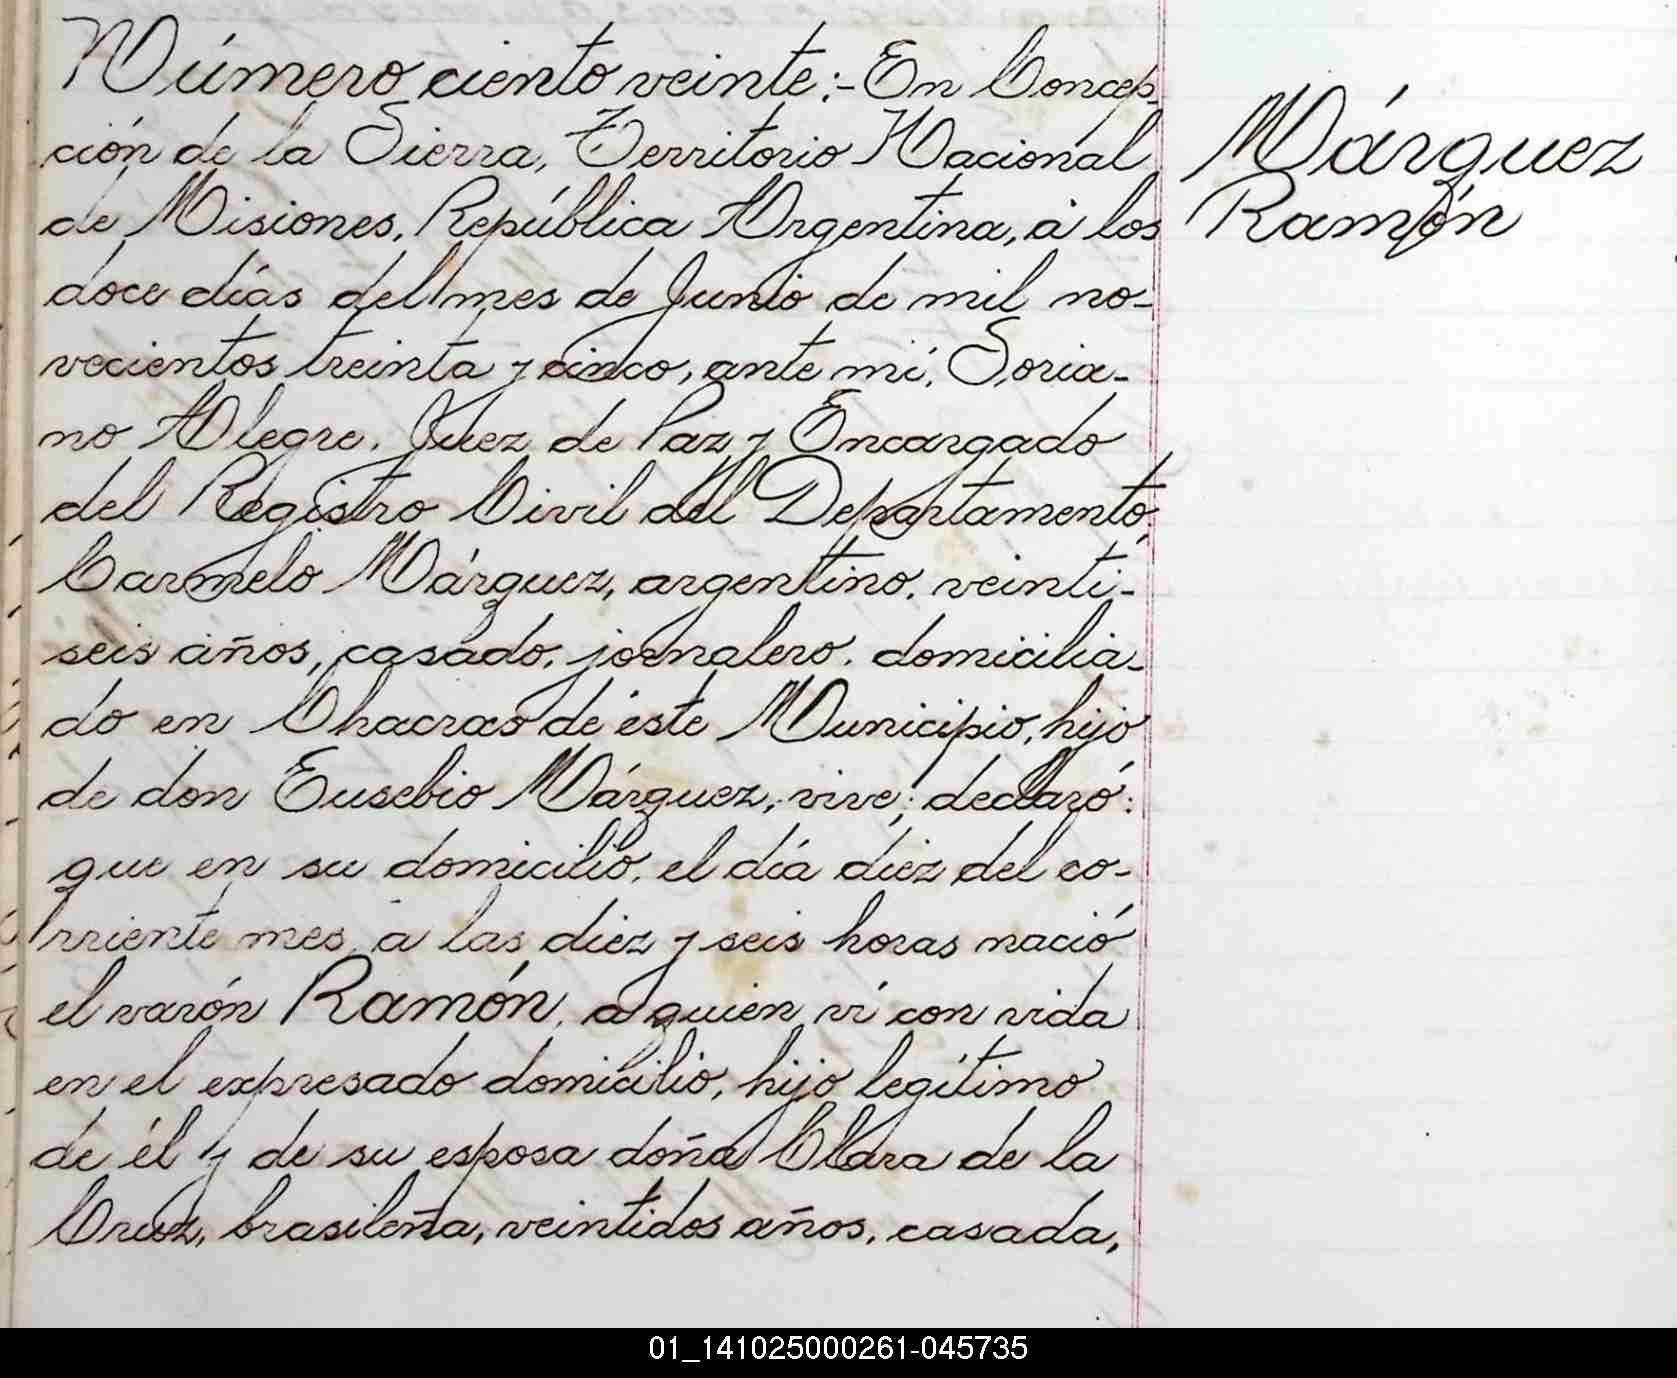 Número ciento veinte:- En Concep-
ción de la Sierra, Territorio Nacional
de Misiones, República Argentina, á los
doce días del mes de Junio de mil no-
vecientos treinta y cinco, ante mí, Soria-
no Alegre, Juez de Paz y Encargado
del Registro Civil del Departamento,
Carmelo Márquez, argentino, veinti-
seis años, casado, jornalero, domicilia-
do en Chacras de éste Municipio, hijo
de don Eusebio Márquez, vive; declaró:
que en su domicilio, el día diez del co-
rriente mes, a las diez y seis horas nació
el varón Ramón, a quien ví con vida
en el expresado domicilio, hijo legítimo
de él y de su esposa doña Clara de la
Cruz, brasileña, veintidos años, casada,
Márquez
Ramón
01_141025000261-045735